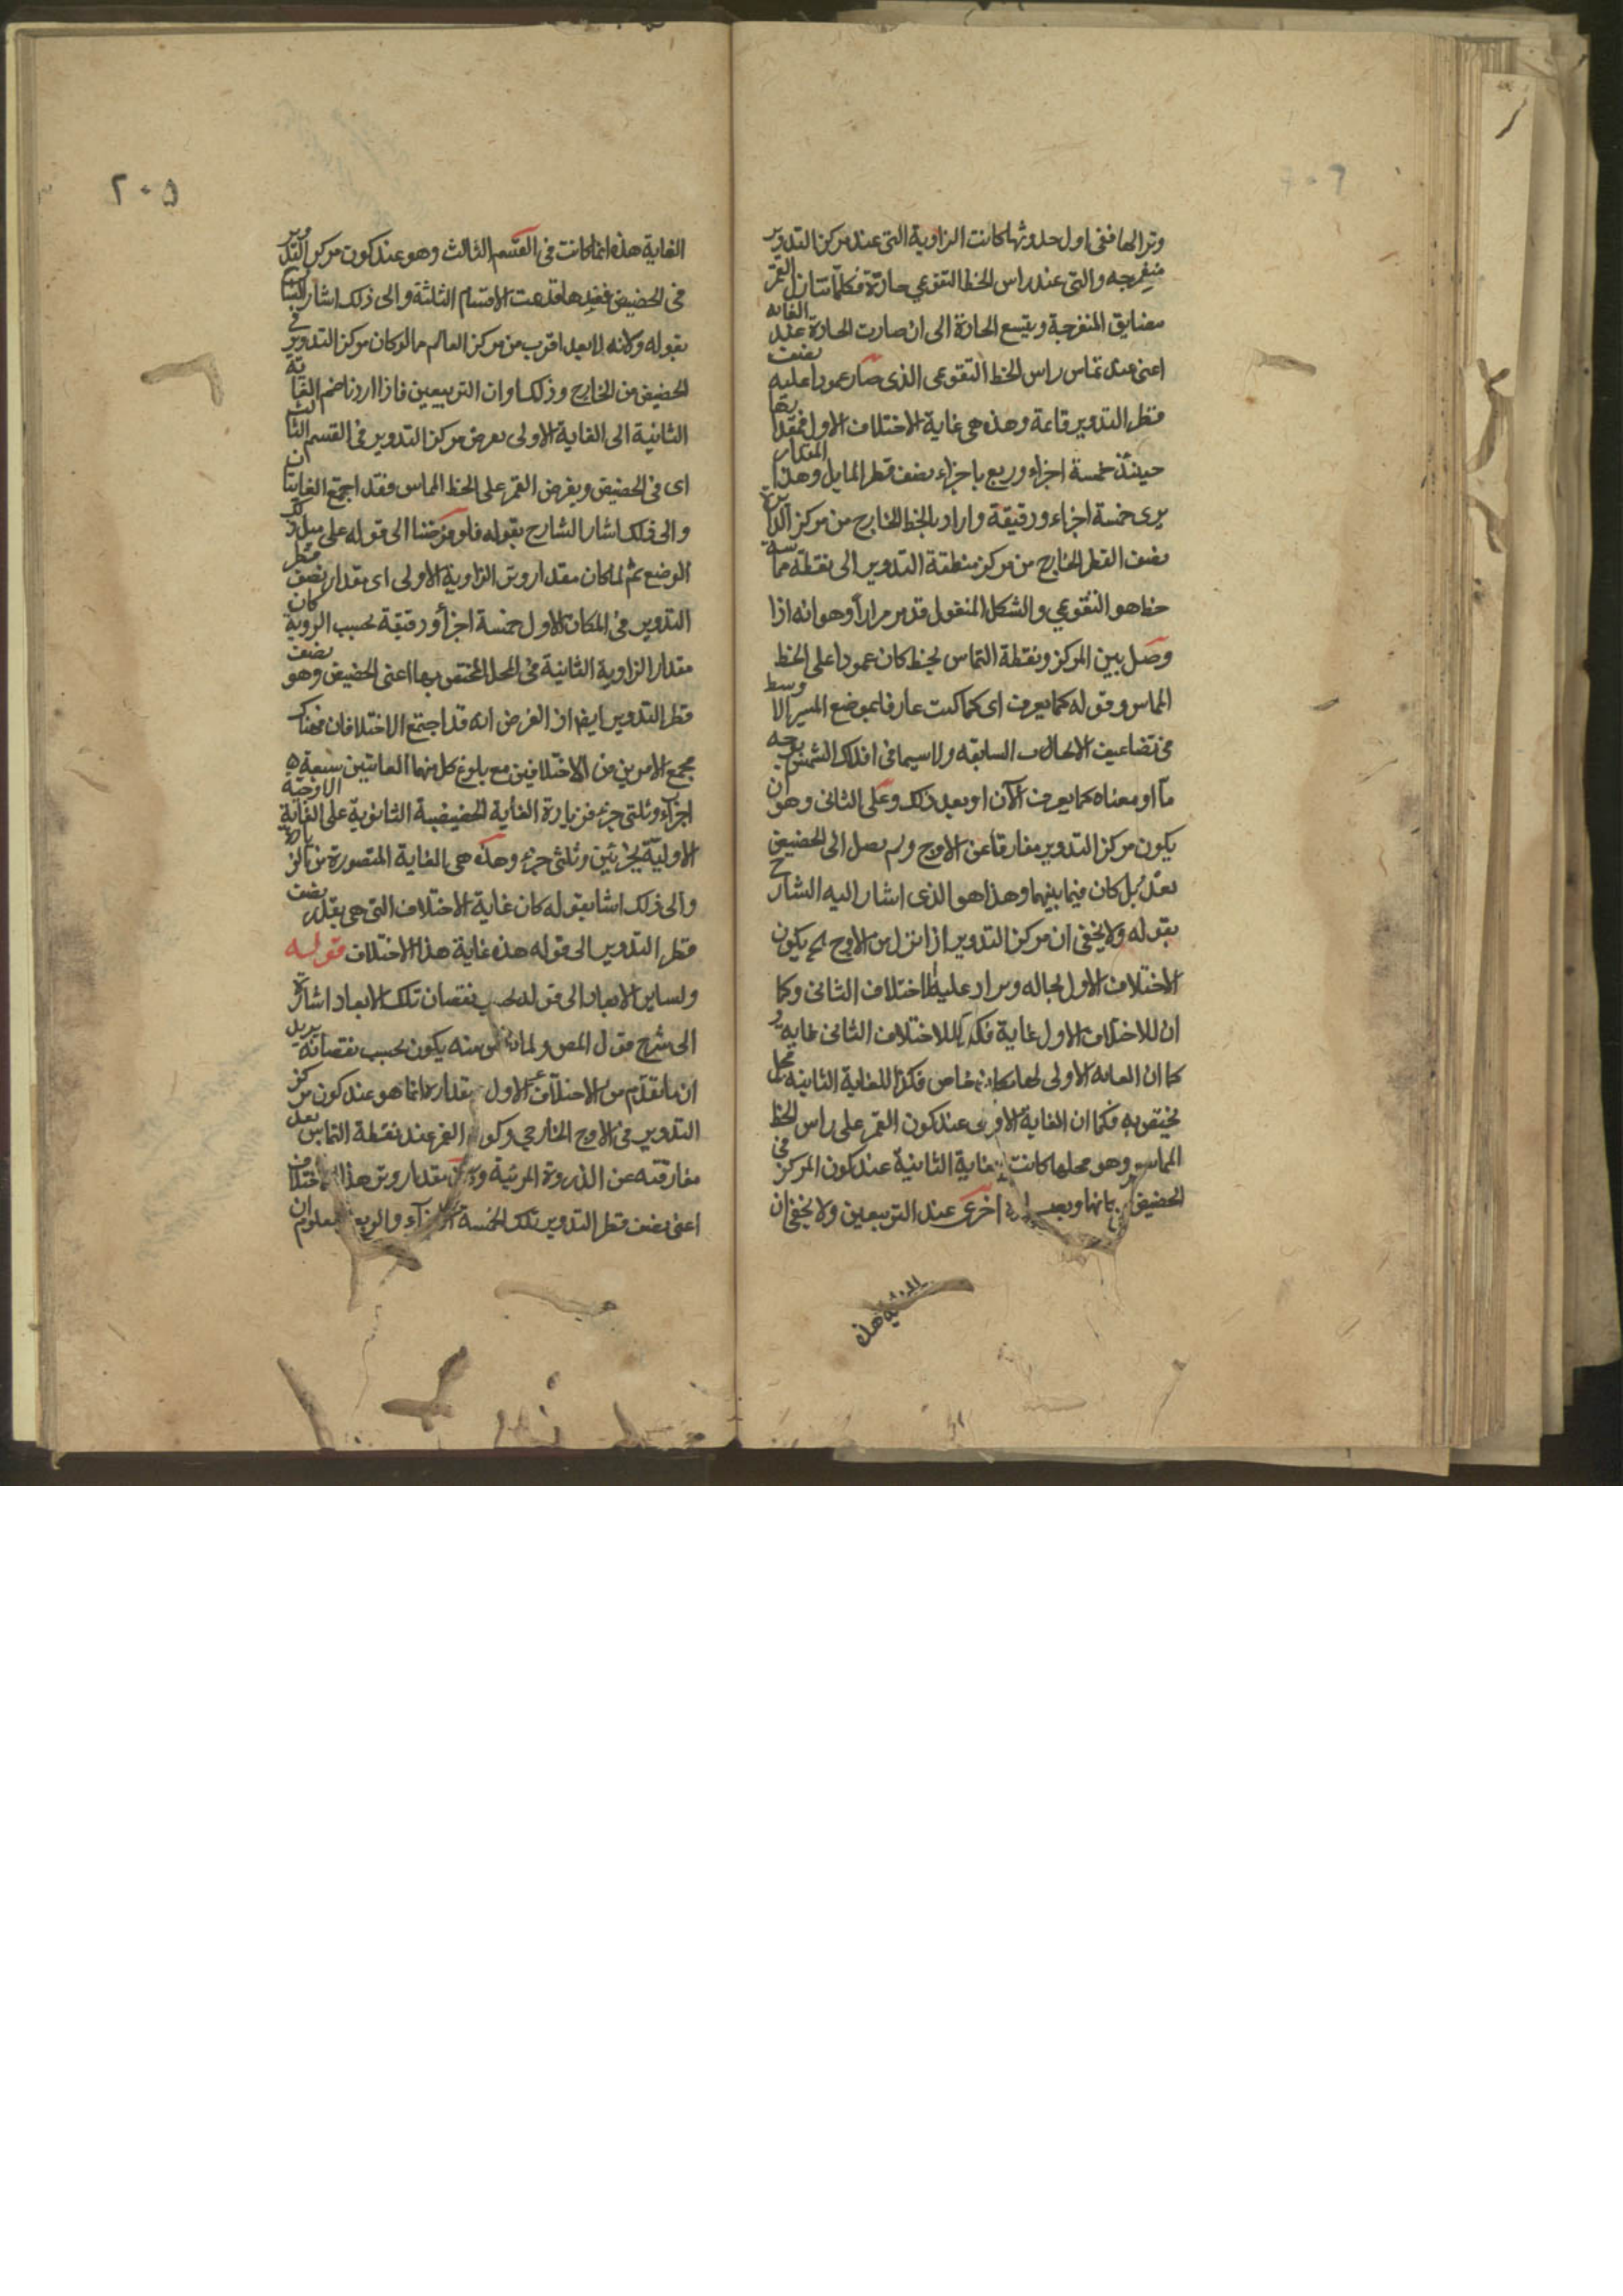 وترا لها ففى اول حدوثها كانت الزاوية التى عند مركز التدوير
منفرجه والتى عند راس الخط التقوعي حادّة فكلما تنازل القمر
مضايق المنفرجة ويتسع الحادة الى ان صارت الحادة عند الغايه
اعنى عند تماس راس الخط التقوعى الذى صار عمودا عليه نصف
قطر التدوير قاعة وهذه هى غاية الاختلاف الاول فمقدارها
حينئذ خمسة اجزاء وربع باجزاء نصف قطر المايل وهذا المقدار
يرى خمسة اجزاء ودقيقة واراد بالخط الخارج من مركز
نصف القطر الخارج من مركز منطقة التدوير الى نقطة مماسة
خط هو التقوعي والشكل المنقول قد مر مرارا وهو انه اذا
وصل بين المركز ونقطة التماس بخط كان عمودا على الخط
المماس وقوله كما يعرف اى كما كنت عارفا بموضع المسير الاوسط
فى تضاعيف الاحوال السابقه ولا سيما فى افلاك الشمس بوجه
ما او معناه كما يعرف الآن او بعد ذلك وعلى الثانى وهو ان
يكون مركز التدوير مفارقا عن الاوج ولم يصل الى الحضيض
بعد بل كان فيما بينهما وهذا هو الذى اشار اليه الشارح
بقوله ولا يخفى ان مركز التدوير اذا نزل من الاوج لم يكون
الاختلاف الاول بحاله ويزاد عليه الاختلاف الثانى وكما
ان للاختلاف الاول غاية فكذلك للاختلاف الثانى غاية و
كما ان الغايه الاولى لها مكان خاص فكذا للغاية الثانية محل
يختص به فكما ان الغاية الاولى عند كون القمر على راس الخط
المماس وهو محلها كانت الغاية الثانية عند كون المركز فى
الحضيض اخرى عند التربيعين ولا يخفى ان
الغاية هذه
٢٠٥
الغاية هذه انما كانت فى القسم الثالث وهو عند كون مركز التدوير
فى الحضيض فعندها قد تمت الاقسام الثلثة والى ذلك اشار الشارح
بقوله وكانه لا بعد اقرب من مركز العالم ما لو كان مركز التدوير فى
الحضيض من الخارج وذلك اوان التربيعين فاذا اردنا ضم الغاية
الثانية الى الغاية الاولى نعرض مركز التدوير فى القسم الثالث
اى فى الحضيض ويفرض القمر على الخط المماس فقد اجتمع الغايتان
والى ذلك اشار الشارح بقوله فلو فرضنا الى قوله على
الوضع ثم لما كان مقدار وتر الزاوية الاولى اى مقدار نصف قطر
التدوير فى المكان الاول خمسة اجزأ ودقيقة بحسب الروية كان
مقدار الزاوية الثانية فى المحل المختص بها اعنى الحضيض وهو نصف
قطر التدوير ايضا اذ الغرض انه قد اجتمع الاختلافان هناك
مجمع الامرين من الاختلافين مع بلوغ كل منهما الغايتين سبعة
اجزآء وثلثى جزء فزيادة الغاية الحضيضية الثانوية على الغاية الاوجية
الاولية بجزئين وثلثى جزء وهذه هى الغاية المتصورة من الزيادة
والى ذلك اشار بقوله كان غاية الاختلاف التى هى بقدر نصف
قطر التدوير الى قوله هذه غاية هذا الاختلاف قوله
ولساير الابعاد الى قوله بحسب نقصان تلك الابعاد اشارة
الى شرح قول المص ولما منه يكون بحسب نقصانه يريد
ان ما تقدم من الاختلاف الاول مقداره انما هو عند كون مركز
التدوير فى الاوج الخارجي وكون القمر عند نقطة التماس بعد
مفارقته عن الذروة المرئية مقدار وتر هذا الاختلاف
اعنى نصف قطر التدوير تلك الخمسة الاجزآء والربع معلوم ان